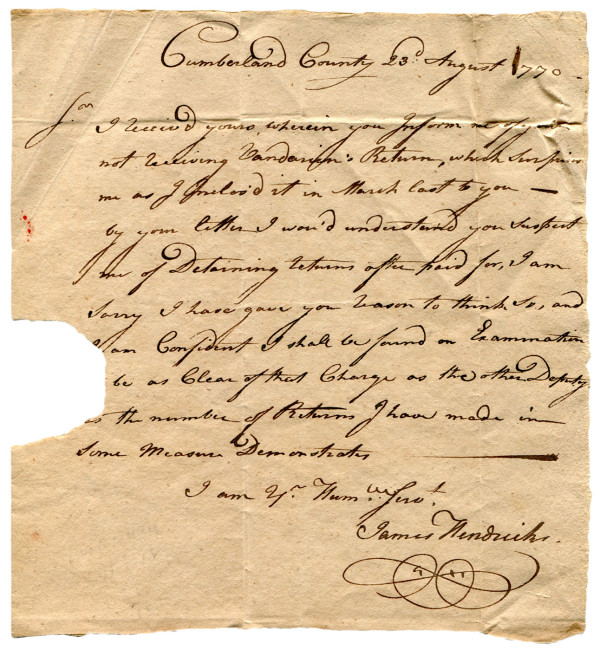 Cumberland County 23d August 1770
Sir
I receiv'd yours, wherein you Inform me of your
not receiving Vandarien's Return, which Surprises
me as I Inclos'd it in March last to you —
by your letter I wou'd understand you Suspect
me of Detaining returns after paid for, I am
Sorry I have gave you reason to think So, and
I am Confident I shall be found on Examination
be as Clear of that Charge as the other Deputy
as the number of Returns I have made in
Some Measure Demonstrates
I am Yr. Humble Servt.
James Hendricks.